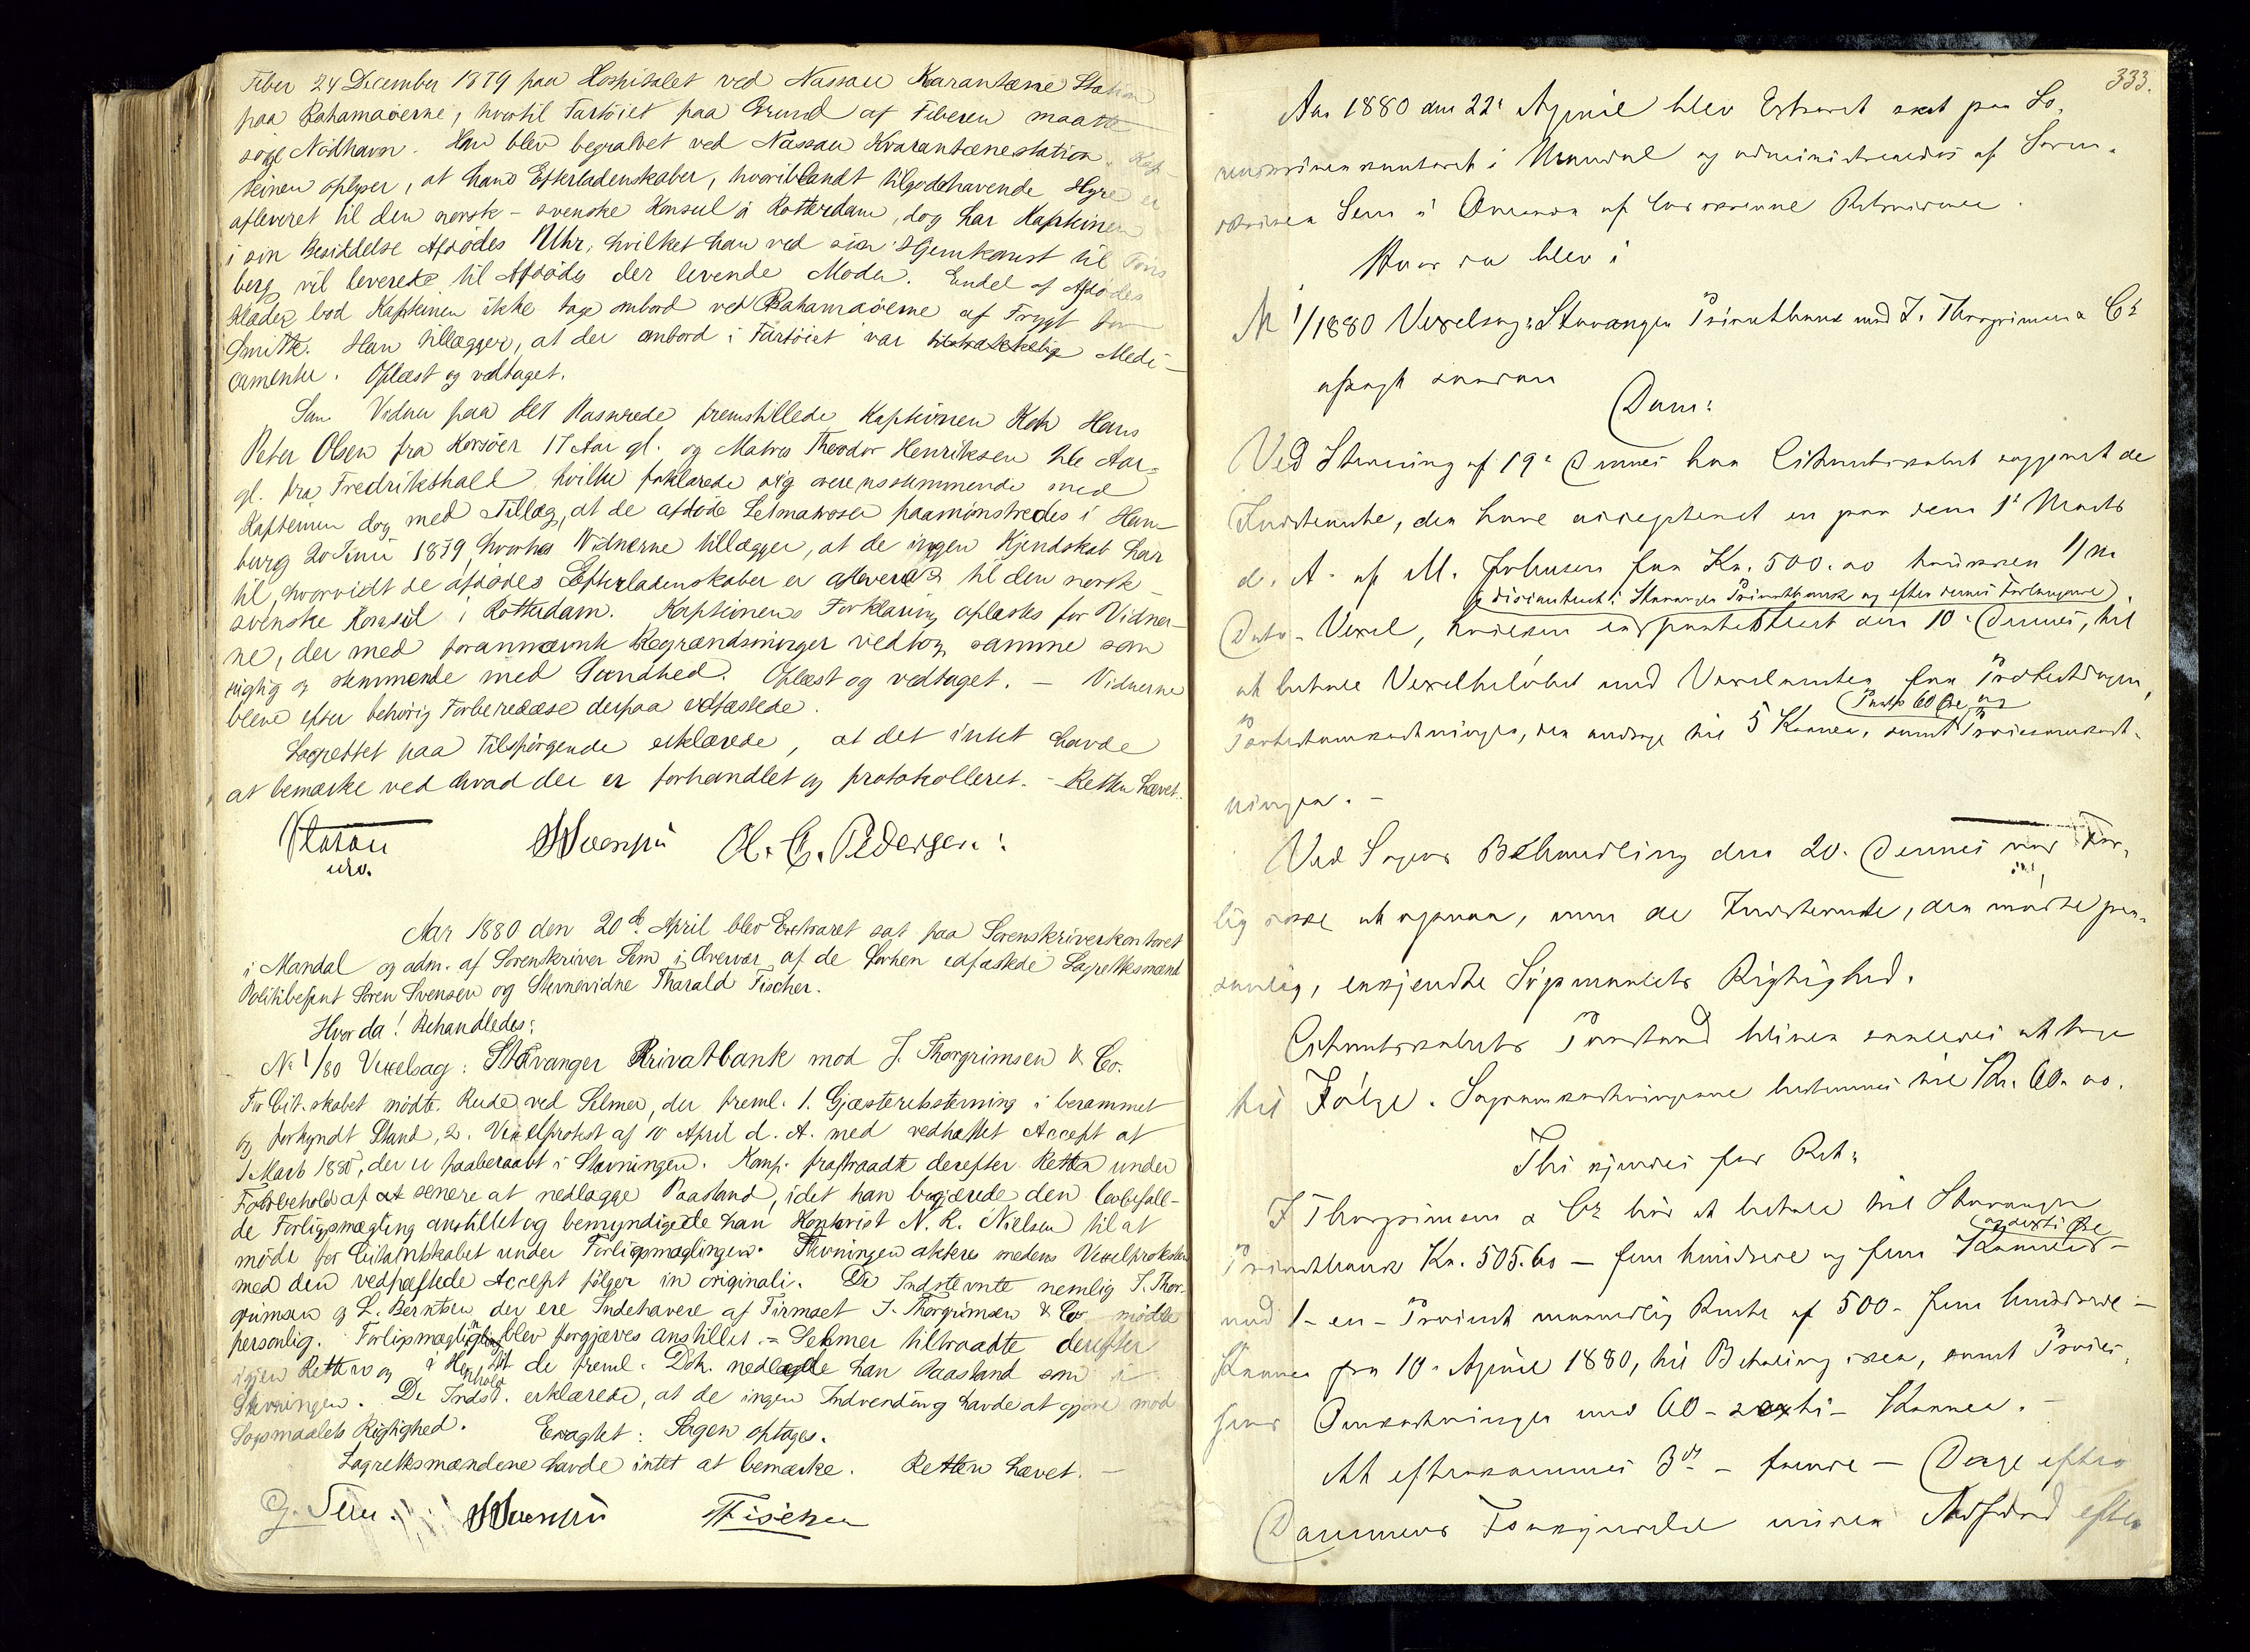 Feber 24 December 1879 paa Hospitalet ved Nassau Karantæne Station
paa Bahamaöerne, hvortil Fartöiet paa Grund af Feberen maatte
söge Nödhavn. Han blev begravet ved Nassau Kvarantænestation. Kap-
teinen oplyser, at hans Efterladenskaber, hvoriblandt tilgodehavende Hyre er
afleveret til den norsk-svenske Konsul i Rotterdam, dog har Kapteinen
i sin Besiddelse Afdödes Uhr, hvilket han ved sin Hjemkomst til Töns
berg vil levere til Afdödes der levende Moder. Endel af Afdödes
Klæder lod Kapteinen ikke tage ombord ved Bahamaöerne af Frygt for
Smitte. Han tillægger, at der ombord i Fartöiet var tilstrækkelig Medi-
camenter. Oplæst og vedtaget.
Som Vidner paa det Passerede fremstillede Kapteinen Kok Hans
Peter Olsen fra Korsöer 17 Aar gl. og Matros Theodor Henriksen Aar
gl. fra Fredrikshald hvilke forklarede sig overensstemmende med
Kapteinen dog med Tillæg, at de afdöde Letmatroser paamönstredes i Ham-
burg 20 Juni 1879, hvorhos Vidnerne tillægger, at de ingen Kjendskab har
til, hvorvidt de afdödes Efterladenskaber er afleverede til den norsk-
svenske Konsul i Rotterdam. Kapteinens Forklaring oplæstes for Vidner-
ne, der med forannævnte Begrændsninger vedtog samme som
rigtig og stemmende med Sandhed. Oplæst og vedtaget. – Vidnerne
bleve efter behörig Forberedelse derpaa edfæstede.
Lagrettet paa Tilspörgende erklærede, at det intet havde
at bemærke ved hvad der er forhandlet og protokolleret. – Retten hævet.
O. C. Pedersen.
Aar 1880 den 20de April blev Extraret sat paa Sorenskriverkontoret
i Mandal og adm. af Sorenskriver Sem i Overvær af de forhen edfæstede Lagrettesmænd
Politibetjent Sören Svensen og Stevnevidne Tharald Fischer.
Hvor da! Behandledes:
No 1/80 Vexelsag: Stavanger Privatbank mod J. Thorgrimsen & Co.
For Cit.skabet mödte Rude ved Selmer, der freml. 1. Gjæsteretsstevning i berammet
og forkyndt Stand, 2. Vexelprotest af 10 April d. A. med vedhæftet Accept af
1 Marts 1880, der er paaberaabt i Stevningen. Komp. fratraadte derefter Retten under
Forbehold af at senere at nedlægge Paastand, idet han begjærede den lovbefale-
de Forligsmægling anstillet og bemyndigede han Kontorist N. R. Nielsen til at
möde for Citantskabet under Forligsmæglingen. Stevningen akteres medens Vexelprotesten
med den vedhæftede Accept fölger in originali. De Indstevnte nemlig J. Thor-
grimsen og L. Berntsen der ere Indehavere af Firmaet J. Thorgrimsen & Co mödte
personlig. Forligsmægling blev forgjæves anstillet. – Selmer tiltraadte derefter
igjen Retten og i Henhold til de freml. Dok. nedlagde han Paastand som i
Stevningen. De Indst. erklærede, at de ingen Indvending havde at gjöre mod
Sögsmaalets Rigtighed. Eragtet: Sagen optages.
Lagrettesmændene havde intet at bemærke. Retten hævet. –
G. Sem. SSvensen TFischer
333.
Aar 1880 den 22de April blev Extraret sat paa So-
renskriverkontoret i Mandal og administreredes af Soren-
skriver Sem i Overvær af Retsvidner.
Hvor da blev i
No 1/1880 Vexelsag: Stavanger Privatbank mod J. Thorgrimsen & Co
afsagt saadan
Dom:
Ved Stevning af 19de Dennes har Citantskabet sagsögt de
Indstevnte, der have accepteret en paa dem 1ste Marts
d. A. af M. Johnsen for Kr. 500.00 trukken 1/m
og discontert i Stavanger Privatbank og efter dennes Forlangende
Dato-Vexel, hvilken er protesteret den 10de Dennes, til
at betale Vexelbelöbet med Vexelrenter fra Protestdagen,
Porto 60 Öre og
Protestomkostninger, der andrage til 5 Kroner, samt Procesomkost-
ninger. –
Ved Sagens Behandling den 20. Dennes var For-
lig ikke at opnaa, men de Indstevnte, der mödte per-
sonlig, erkjendte Sögsmaalets Rigtighed.
Citantskabets Paastand bliver saaledes at tage
til Fölge. Sagsomkostningerne bestemmes til Kr. 60.00.
Thi kjendes for Ret:
J Thorgrimsen & Co bör at betale til Stavanger
og sexti Öre
Privatbank Kr. 505.60 – fem hundrede og fem Kroner –
med 1 – en – Procent maanedlig Rente af 500 – fem hundrede –
Kroner fra 10de April 1880, til Betaling sker, samt Proces-
sens Omkostninger med 60 – sexti – Kroner. –
At efterkommes 3de – tvende – Dage efter
Dommens Forkyndelse under Adfærd efter